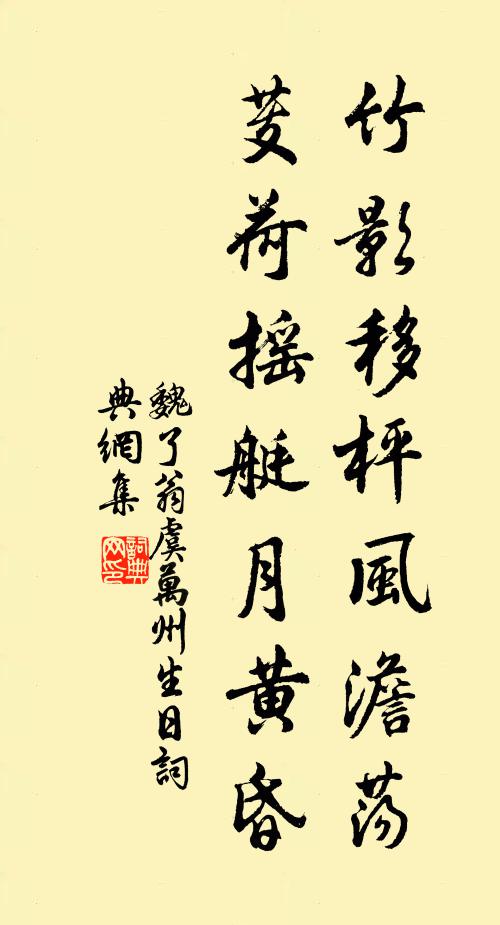 竹影移枰風澹蕩
芰荷搖艇月黃昏
魏了翁虞萬州生日詞
典網集
詞典
网印